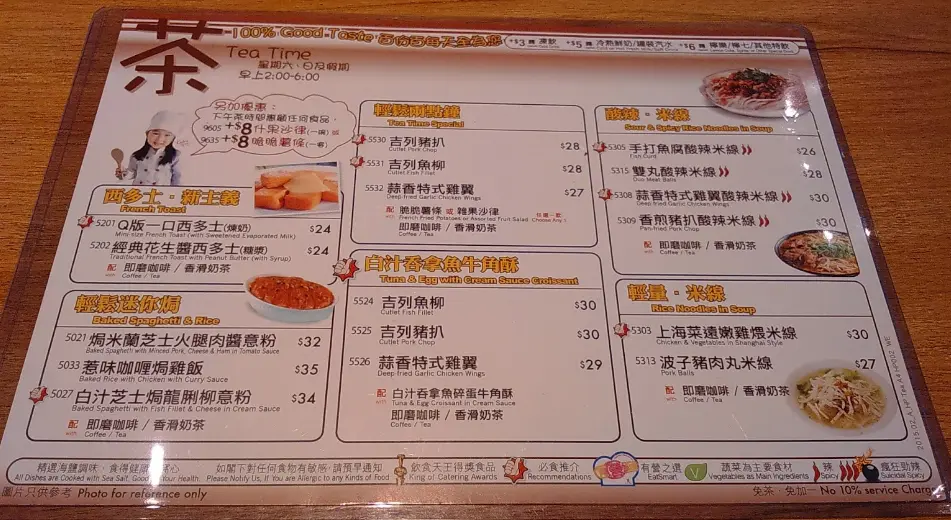 茶
100% Good Taste 百份百每天全為您
+$3 轉 凍飲
+$5 轉 冷熱鮮奶/罐裝汽水
+$6 轉
Tea Time
星期六、日及假期
早上2:00-6:00
另加優惠：
下午茶時段惠顧任何食品，
9605 +$8 什果沙律(一碗) 或
9635 +$8 脆脆薯條(一客)
西多士·新主義
French Toast
5201 Q版一口西多士(煉奶) $24
Mini-size French Toast (with Sweetened Evaporated Milk)
5202 經典花生醬西多士(糖漿) $24
Traditional French Toast with Peanut Butter (with Syrup)
配 with 即磨咖啡 / 香滑奶茶
Coffee / Tea
輕鬆迷你焗
Baked Spaghetti & Rice
5021 焗米蘭芝士火腿肉醬意粉 $32
Baked Spaghetti with Minced Pork, Cheese & Ham in Tomato Sauce
5033 惹味咖喱焗雞飯 $35
Baked Rice with Chicken with Curry Sauce
5027 白汁芝士焗龍脷柳意粉 $34
Baked Spaghetti with Fish Fillet & Cheese in Cream Sauce
配 with 即磨咖啡 / 香滑奶茶
Coffee / Tea
輕鬆兩點鐘
Tea Time Special
5530 吉列豬扒 $28
Cutlet Pork Chop
5531 吉列魚柳 $28
Cutlet Fish Fillet
5532 蒜香特式雞翼 $27
Deep-fried Garlic Chicken Wings
配 with 脆脆薯條 或 雜果沙律 任選一款
French Fried Potatoes or Assorted Fruit Salad Choose Any 1
即磨咖啡 / 香滑奶茶
Coffee / Tea
白汁吞拿魚牛角酥
Tuna & Egg with Cream Sauce Croissant
5524 吉列魚柳 $30
Cutlet Fish Fillet
5525 吉列豬扒 $30
Cutlet Pork Chop
5526 蒜香特式雞翼 $29
Deep-fried Garlic Chicken Wings
配 with 白汁吞拿魚碎蛋牛角酥
Tuna & Egg Croissant in Cream Sauce
即磨咖啡 / 香滑奶茶
Coffee / Tea
酸辣·米線
Sour & Spicy Rice Noodles in Soup
5305 手打魚腐酸辣米線 $26
Fish Curd
5315 雙丸酸辣米線 $28
Duo Meat Balls
5308 蒜香特式雞翼酸辣米線 $30
Deep-fried Garlic Chicken Wings
5309 香煎豬扒酸辣米線 $30
Pan-fried Pork Chop
配 with 即磨咖啡 / 香滑奶茶
Coffee / Tea
輕量·米線
Rice Noodles in Soup
5303 上海菜遠嫩雞煨米線 $30
Chicken & Vegetables in Shanghai Style
5313 波子豬肉丸米線 $27
Pork Balls
配 with 即磨咖啡 / 香滑奶茶
Coffee / Tea
精選海鹽調味，食得健康
All Dishes are Cooked with Sea Salt, Good Your Health.
如閣下對任何食物有敏感，請預早通知
Please Notify Us, If You are Allergic to any Kinds of Food
飲食天王得獎食品
King of Catering Awards
必食推介
Recommendations
有營之選
EatSmart
蔬菜為主要食材
Vegetables as Main Ingredients
辣
Spicy
瘋狂勁辣
Suicidal Spicy
圖片只供參考 Photo for reference only
免茶，免加一 No 10% service Charge